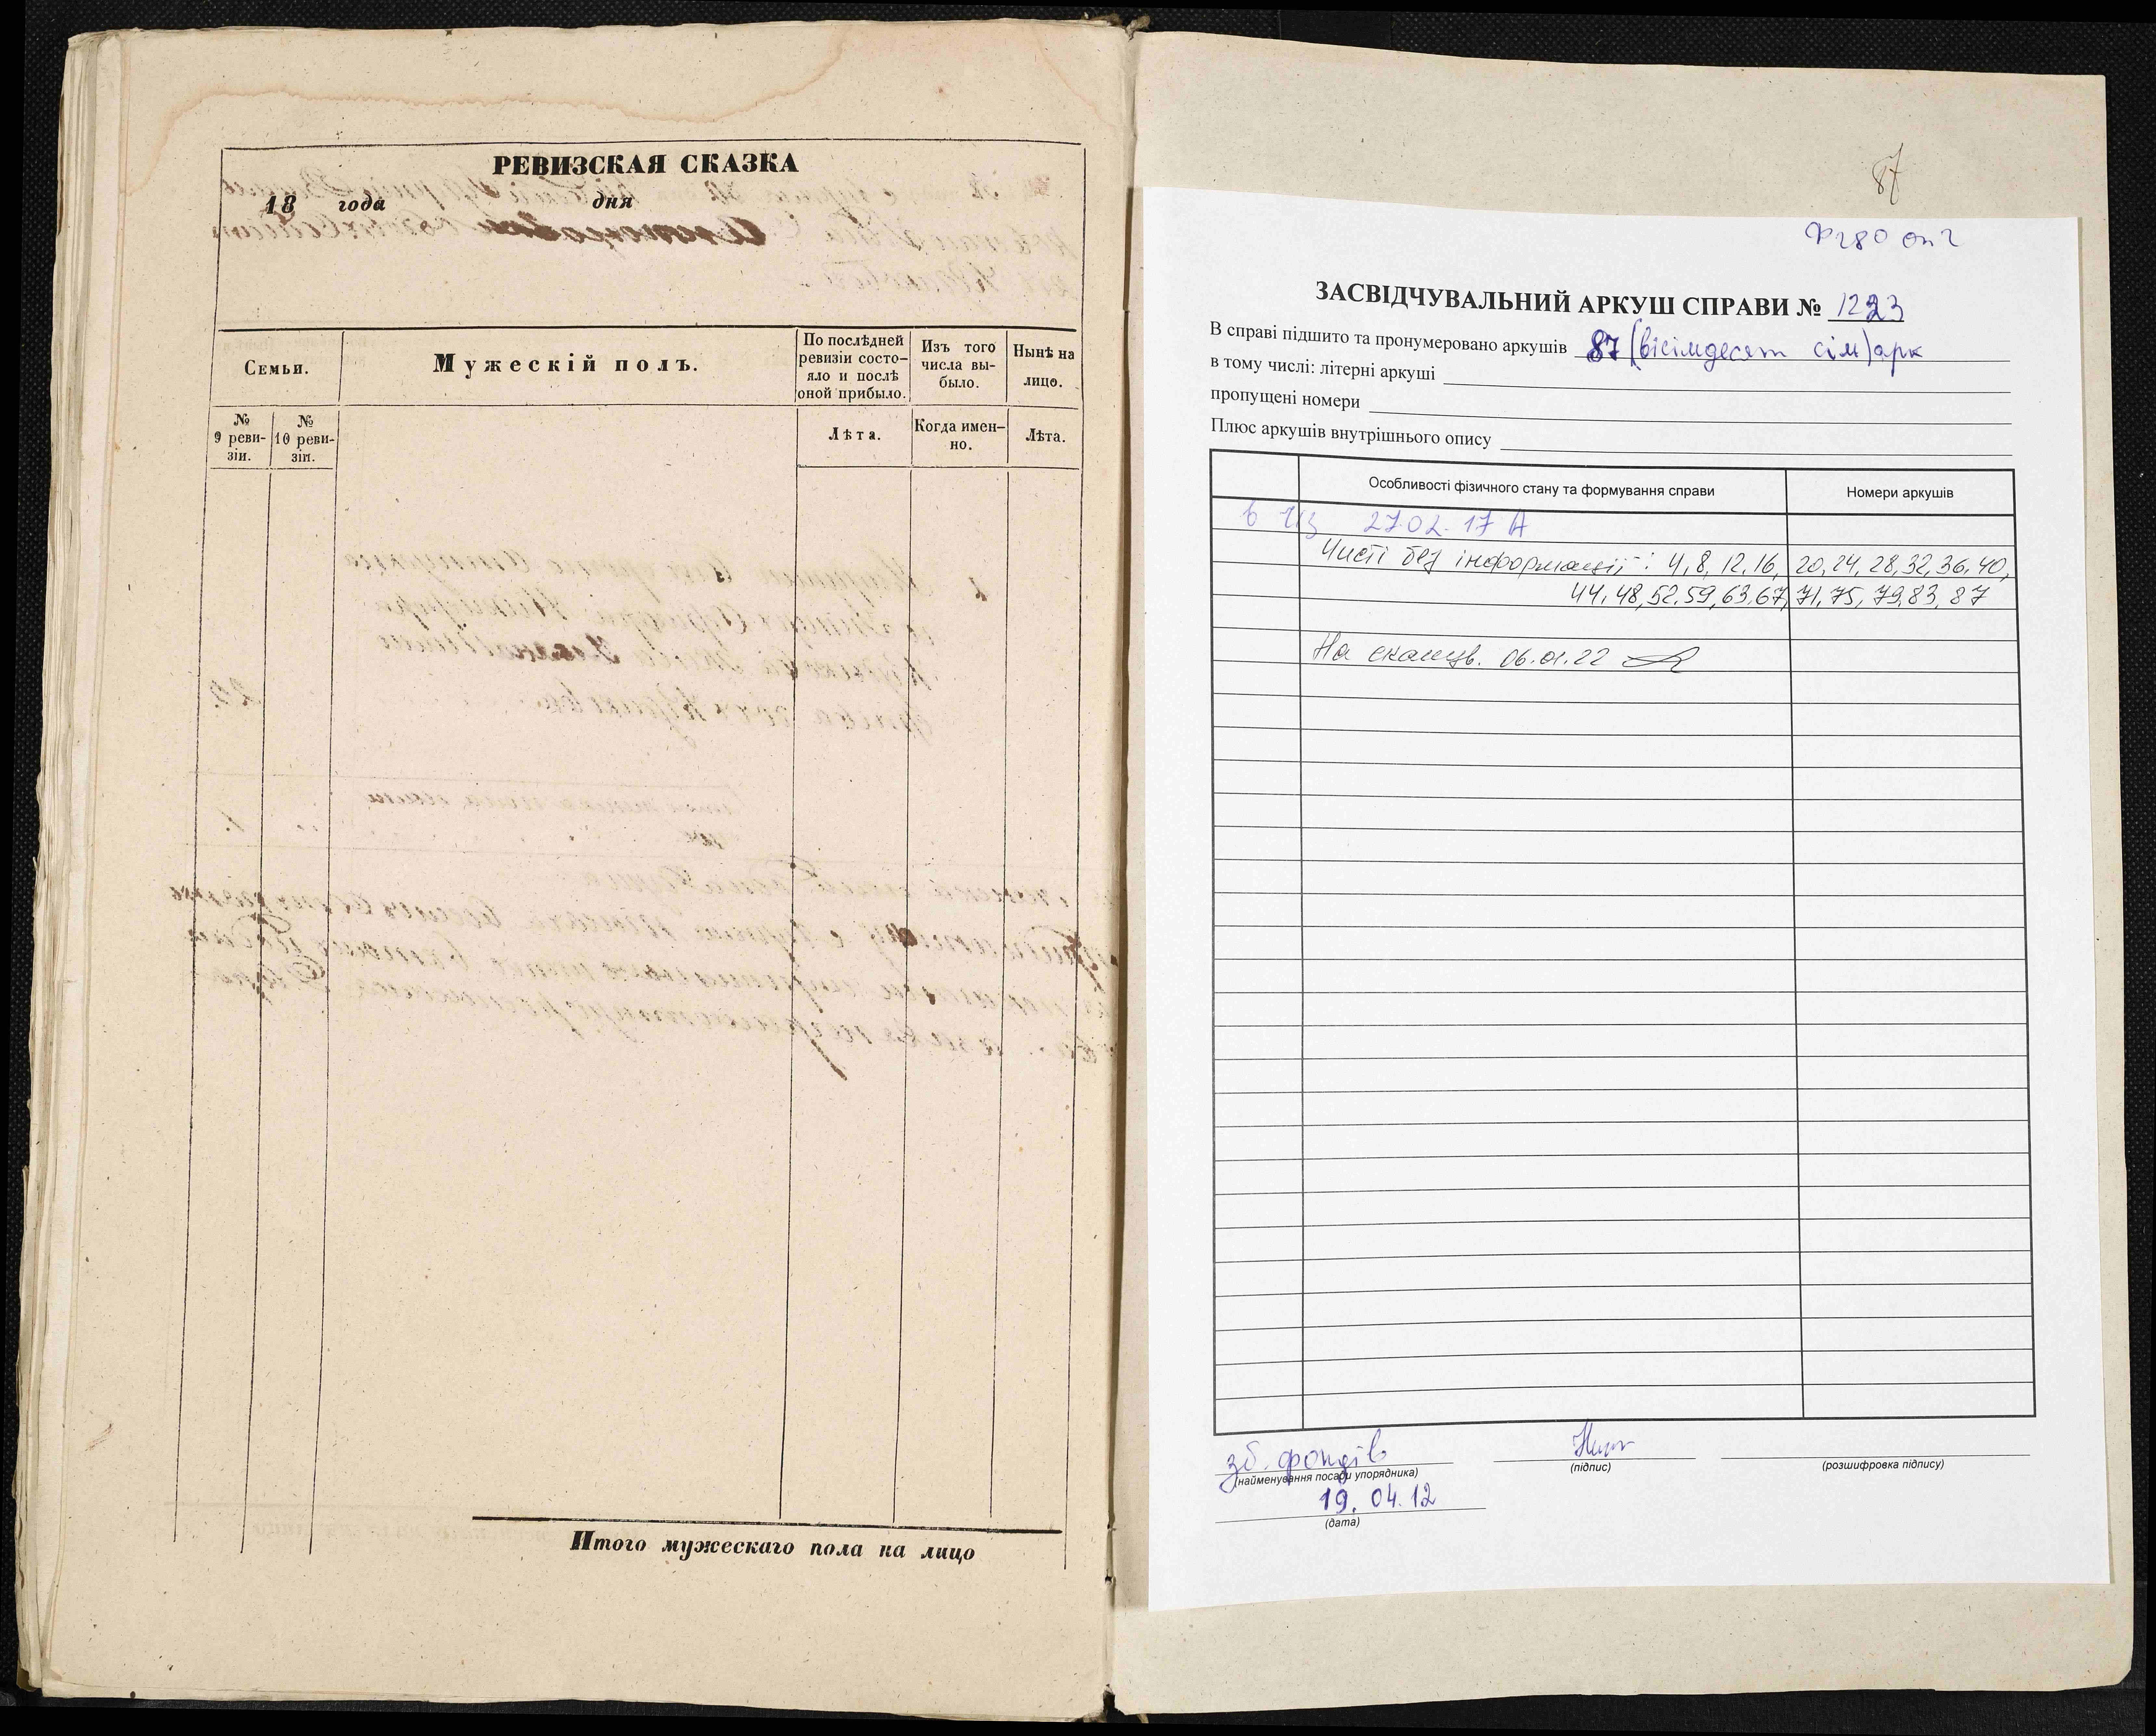 РЕВИЗСКАЯ СКАЗКА
18 года дня
Семьи.
Мужескій полъ.
По послѣдней ревизіи состо-
яло и послѣ оной прибыло.
Изъ того числа вы-
было.
Нынѣ на лицо.
№ 9 реви-
зіи.
№ 10 реви-
зіи.
Лѣта.
Когда имен-
но.
Лѣта.
Итого мужескаго пола на лицо
87
Ф 280 оп 2
ЗАСВІДЧУВАЛЬНИЙ АРКУШ СПРАВИ № 1223
В справі підшито та пронумеровано аркушів 87 (вісімдесят сім) арк
в тому числі: літерні аркуші
пропущені номери
Плюс аркушів внутрішнього опису
Особливості фізичного стану та формування справи
Номери аркушів
27.02.17
Чисті без інформації: 4, 8, 12, 16, 20, 24, 28, 32, 36, 40,
44, 48, 52, 59, 63, 67, 71, 75, 79, 83, 87
На сканув. 06.01.22
зб. фондів
(найменування посади упорядника)
(підпис)
(розшифровка підпису)
19.04.12
(дата)